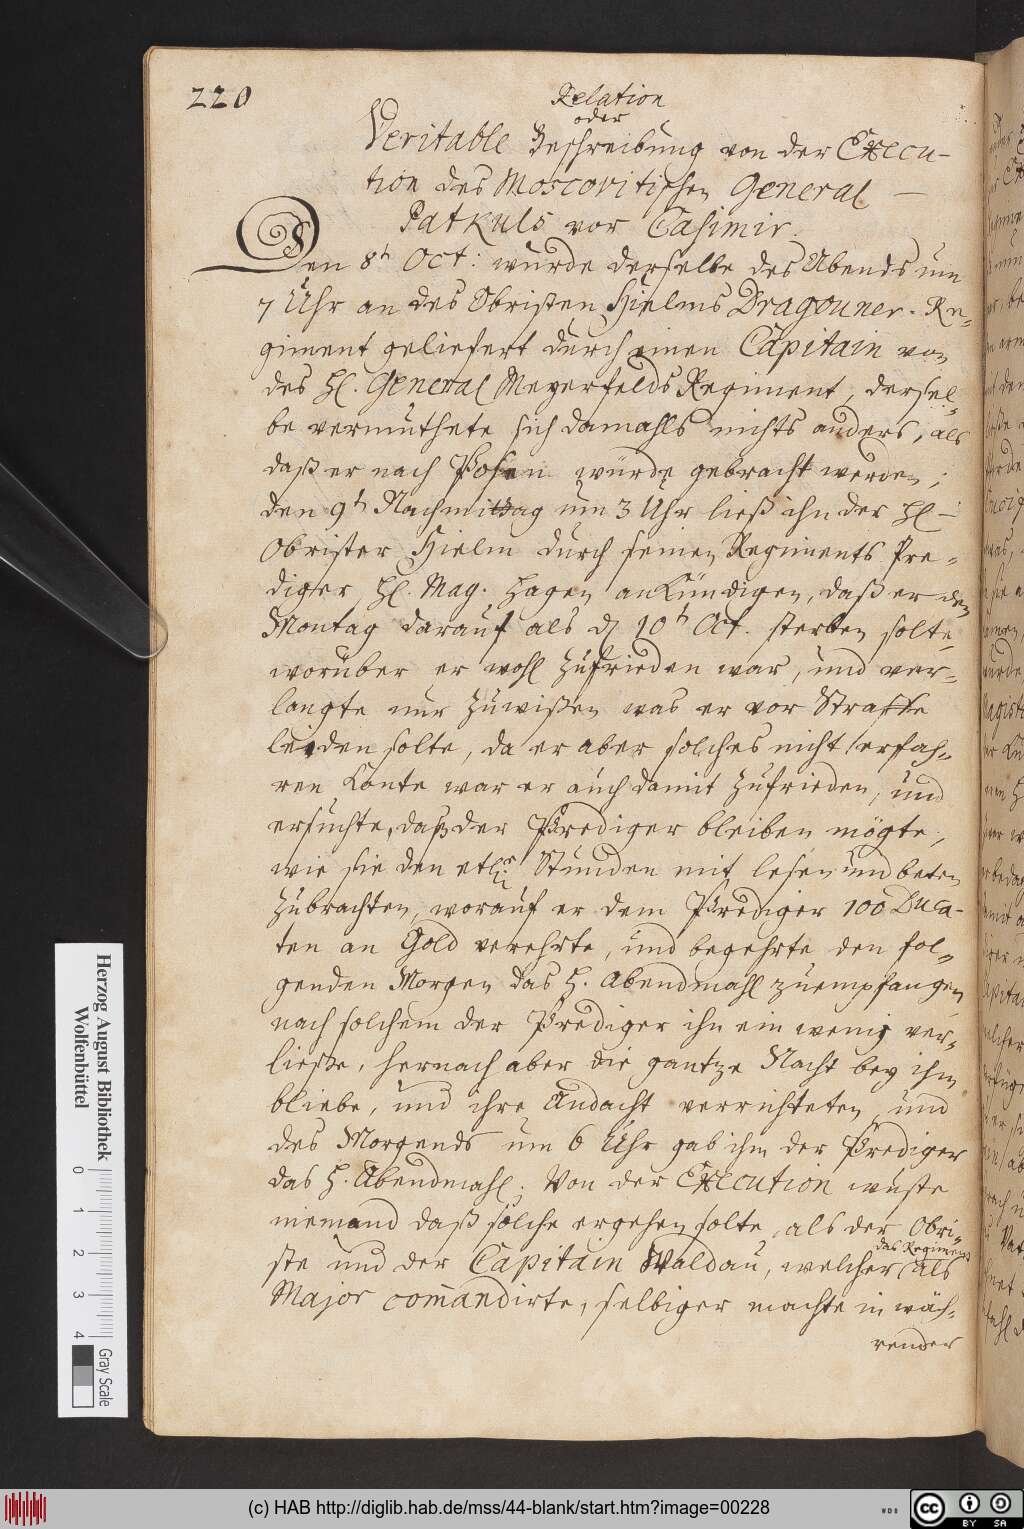 220
Relation
oder
Veritable Beschreibung von der Execu-
tion des Moscovitischen General
Patkuls vor Casimir.
Den 8t Oct: wurde derselbe des Abends um
7 Uhr an des Obristen Hielms Dragouner. Re-
giment geliefert durch einen Capitain von
des H. General Meyerfelds Regiment, dersel-
be vermuthete sich damahls nichts anders, als
daß er nach Posen würde gebracht werden;
den 9t Nachmittag um 3 Uhr ließ ihn der H.
Obrister Hielm durch seinen Regiments Pre-
diger H. Mag. Hagen anKündigen, daß er den
Montag darauf als d 10t Oct. sterben solte,
worüber er wohl zufrieden war, und ver-
langte nur zuwißen was er vor Straffe
leiden solte, da er aber solches nicht erfah-
ren Konte war er auch damit zufrieden, und
ersuchte, daß der Prediger bleiben mögte,
wie sie den etl. Stunden mit lesen und beten
zubrachten, worauf er dem Prediger 100 Duca-
ten an Gold verehrte, und begehrte den fol-
genden Morgen das H. Abendmahl zuempfangen,
nach solchem der Prediger ihn ein wenig ver-
ließe, hernach aber die gantze Nacht bey ihm
bliebe, und ihre Andacht verrichteten, und
des Morgends um 6 Uhr gab ihm der Prediger
das H. Abendmahl; Von der Execution wuste
niemand daß solche ergehen solte, als der Obri-
ste und der Capitain Waldau, welcher das Regiment als
Major comandirte, selbiger machte in wäh-
render
Herzog August Bibliothek
Wolfenbüttel
0 1 2 3 4
Gray Scale
(c) HAB http://diglib.hab.de/mss/44-blank/start.htm?image=00228
WDB
cc BY SA